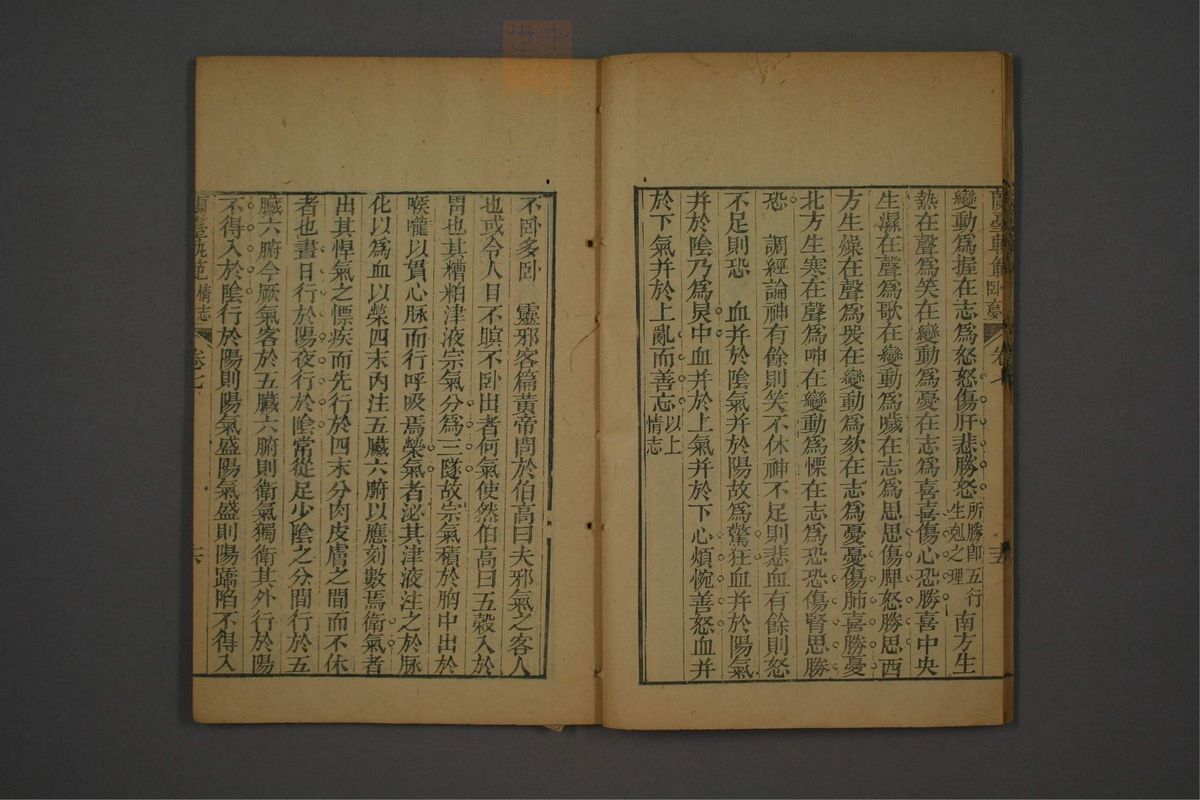 蘭臺軌範 卧夢 卷七 五
變動爲握在志爲怒怒傷肝悲勝怒所勝卽五行生剋之理 南方生
熱在聲爲笑在變動爲憂在志爲喜喜傷心恐勝喜中央
生濕在聲爲歌在變動爲噦在志爲思思傷脾怒勝思西
方生燥在聲爲哭在變動爲欬在志爲憂憂傷肺喜勝憂
北方生寒在聲爲呻在變動爲慄在志爲恐恐傷腎思勝
恐 調經論神有餘則笑不休神不足則悲血有餘則怒
不足則恐 血幷於陰氣幷於陽故爲驚狂血幷於陽氣
幷於陰乃爲炅中血幷於上氣幷於下心煩惋善怒血幷
於下氣幷於上亂而善忘以上情志
不卧多卧 靈邪客篇黃帝問於伯高曰夫邪氣之客人
也或令人目不瞑不卧出者何氣使然伯高曰五穀入於
胃也其糟粕津液宗氣分爲三隧故宗氣積於胸中出於
喉嚨以貫心脉而行呼吸焉榮氣者泌其津液注之於脉
化以爲血以榮四末內注五臟六腑以應刻數焉衛氣者
出其悍氣之慓疾而先行於四末分肉皮膚之間而不休
者也晝日行於陽夜行於陰常從足少陰之分間行於五
臟六腑今厥氣客於五臟六腑則衛氣獨衛其外行於陽
不得入於陰行於陽則陽氣盛陽氣盛則陽蹻陷不得入
蘭臺軌範 情志 卷七 六